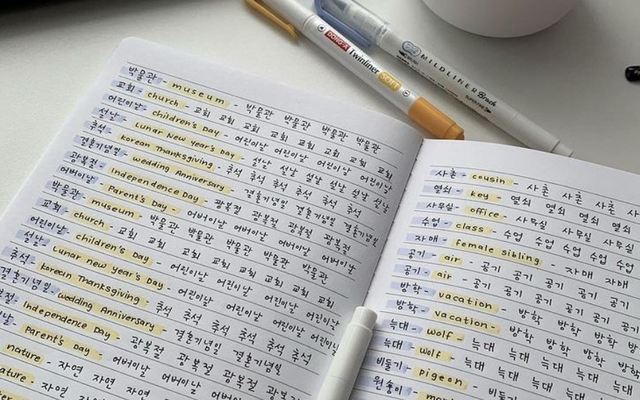 박물관 - museum 박물관 박물관 박물관 박물관
교회 - church - 교회 교회 교회 교회 교회 교회
어린이날 - children's Day - 어린이날 어린이날 어린이날
설날 - Lunar New Year's Day - 설날 설날 설날 설날 설날
추석 - Korean Thanksgiving - 추석 추석 추석 추석 추석
결혼기념일 - wedding Anniversary - 결혼기념일 결혼기념일
광복절 - Independence Day - 광복절 광복절 광복절 광복절
어버이날 - Parent's Day - 어버이날 어버이날 어버이날
박물관 - museum - 박물관 박물관 박물관 박물관
교회 - church - 교회 교회 교회 교회 교회 교회
어린이날 - children's Day - 어린이날 어린이날 어린이날
설날 - Lunar new year's Day - 설날 설날 설날 설날
추석 - Korean Thanksgiving - 추석 추석 추석 추석 추석
결혼기념일 - wedding Anniversary - 결혼기념일 결혼기념일
Independence Day - 광복절 광복절 광복절 광복절
Parent's Day - 어버이날 어버이날
nature - 자연 자연 자연 자연
사촌 - cousin - 사촌 사촌 사촌
열쇠 - key - 열쇠 열쇠 열쇠 열쇠
사무실 - office - 사무실 사무실
수업 - class - 수업 수업 수업 수업
자매 - female sibling - 자매 자매
공기 - air - 공기 공기 공기 공기
공기 - air - 공기 공기 공기 공기
방학 - vacation - 방학 방학 방학
방학 - vacation - 방학 방학 방학
늑대 - wolf - 늑대 늑대 늑대 늑대
늑대 - wolf - 늑대 늑대 늑대 늑대
비둘기 - pigeon - 비둘기
원숭이
DONG-A Twinliner SOFT
MILDLINER Brush